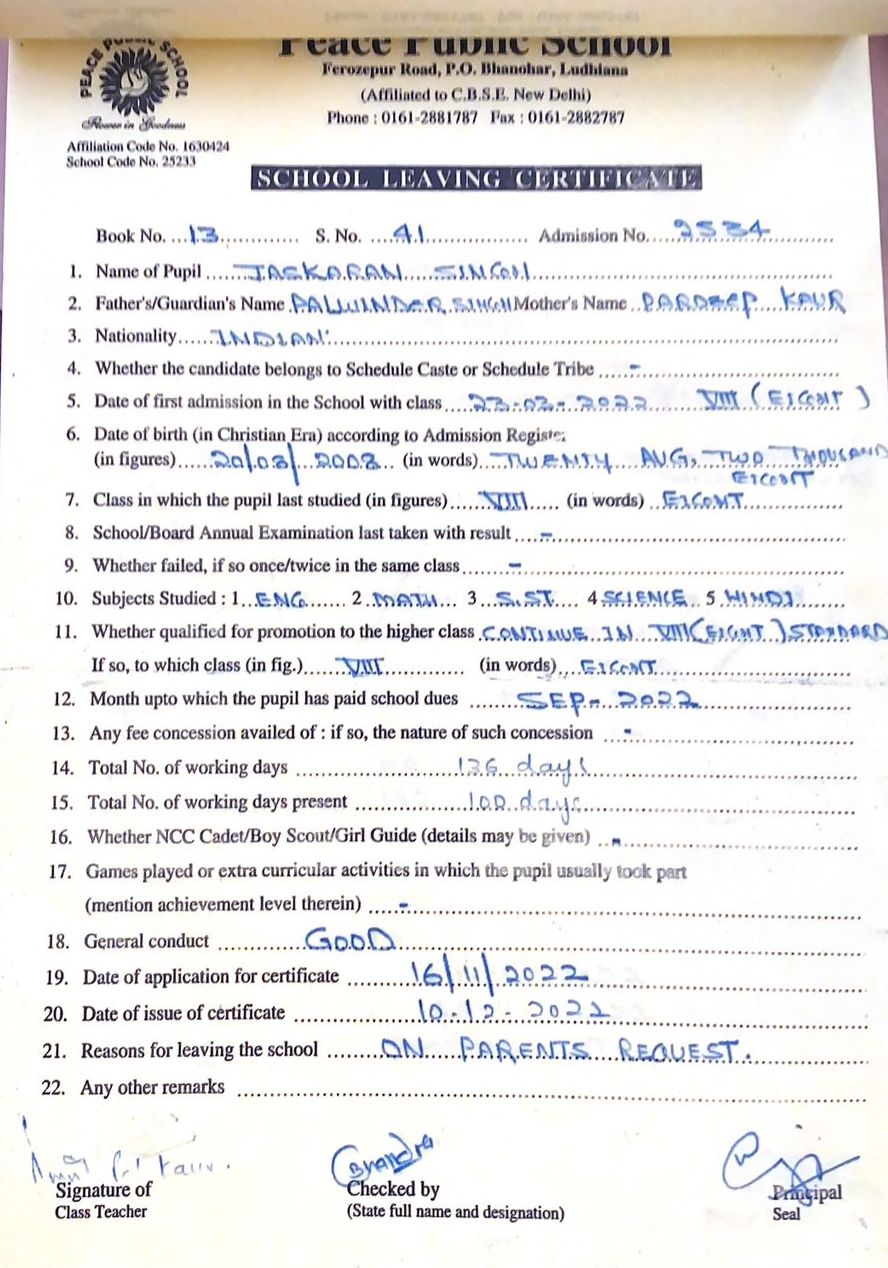 Peace Public School
PEACE PUBLIC SCHOOL
Ferozepur Road, P.O. Bhanohar, Ludhiana
(Affiliated to C.B.S.E. New Delhi)
Flower in Goodness
Phone : 0161-2881787 Fax : 0161-2882787
Affiliation Code No. 1630424
School Code No. 25233
SCHOOL LEAVING CERTIFICATE
Book No. ...13............. S. No. ....41.................. Admission No.....2534...........
1. Name of Pupil ....JASKARAN SINGH....
2. Father's/Guardian's Name .PALWINDER SINGH Mother's Name ..PARDEEP KAUR
3. Nationality......INDIAN....
4. Whether the candidate belongs to Schedule Caste or Schedule Tribe ....-....
5. Date of first admission in the School with class....23-03-2022 VIII (EIGHT)
6. Date of birth (in Christian Era) according to Admission Register
(in figures).....20/08/2008 (in words)..TWENTY AUG, TWO THOUSAND
EIGHT
7. Class in which the pupil last studied (in figures).....VIII..... (in words) ..EIGHT....
8. School/Board Annual Examination last taken with result ....-....
9. Whether failed, if so once/twice in the same class....-....
10. Subjects Studied : 1..ENG....... 2 .MATH... 3 ..S.ST.... 4 SCIENCE.. 5 HINDI....
11. Whether qualified for promotion to the higher class .CONTINUE IN VIII (EIGHT) STANDARD
If so, to which class (in fig.).....VIII............. (in words)....EIGHT....
12. Month upto which the pupil has paid school dues ....SEP-2022....
13. Any fee concession availed of : if so, the nature of such concession ....-....
14. Total No. of working days ....136 days....
15. Total No. of working days present ....100 days....
16. Whether NCC Cadet/Boy Scout/Girl Guide (details may be given) ..-....
17. Games played or extra curricular activities in which the pupil usually took part
(mention achievement level therein) ....-....
18. General conduct ....GOOD....
19. Date of application for certificate ....16/11/2022....
20. Date of issue of certificate ....10-12-2022....
21. Reasons for leaving the school ....ON PARENTS REQUEST.....
22. Any other remarks ....
Kaur.
Signature of
Checked by
Principal
Class Teacher
(State full name and designation)
Seal